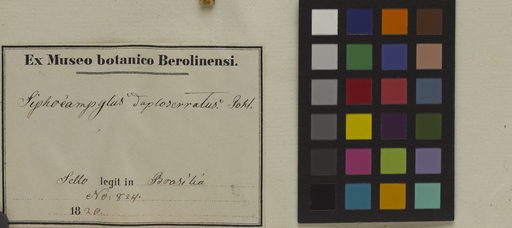 Ex Museo botanico Berolinensi.
Siphocampylus duploserratus Pohl.
Sello legit in Brasilia
No. 824.
1820.